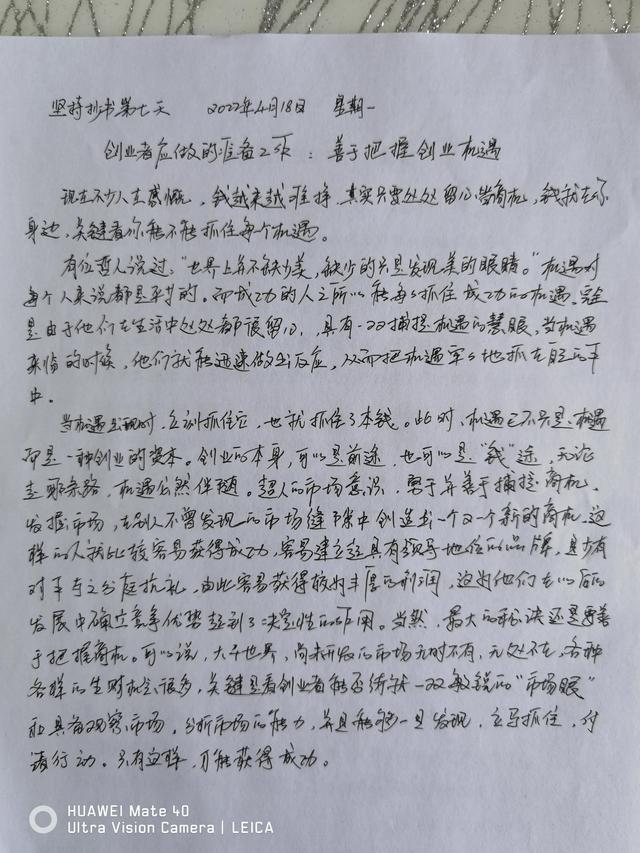 坚持抄书第七天 2022年4月18日 星期一
创业者应做的准备工作：善于把握创业机遇
现在不少人在感慨，钱越来越难挣，其实只要处处留心皆商机，钱就在你
身边，关键看你能不能抓住每个机遇。
有位哲人说过："世界上并不缺少美，缺少的只是发现美的眼睛。"机遇对
每个人来说都是平等的。而成功的人之所以能每每抓住成功的机遇，完全
是由于他们在生活中处处都很留心，具有一双捕捉机遇的慧眼，当机遇
来临的时候，他们就能迅速做出反应，从而把机遇牢牢地抓在自己的手
中。
当机遇出现时，立刻抓住它，也就抓住了本钱。此时，机遇已不只是机遇
而是一种创业的资本。创业的本身，可以是前途，也可以是"钱"途，无论
走哪条路，机遇必然伴随。超人的市场意识，勇于并善于捕捉商机，
发掘市场，在别人不曾发现的市场缝隙中创造出一个又一个新的商机，这
样的人就比较容易获得成功，容易建立起具有领导地位的品牌，且少有
对手与之分庭抗礼，由此容易获得较为丰厚的利润，这为他们在以后的
发展中确立竞争优势起到了决定性的作用。当然，最大的秘诀还是要善
于把握商机。可以说，大千世界，尚未开发的市场无时不有，无处不在，各种
各样的生财机会很多，关键是看创业者能否练就一双敏锐的"市场眼"
和具备观察市场，分析市场的能力，并且能够一旦发现，立马抓住，付
诸行动。只有这样，才能获得成功。
HUAWEI Mate 40
Ultra Vision Camera | LEICA